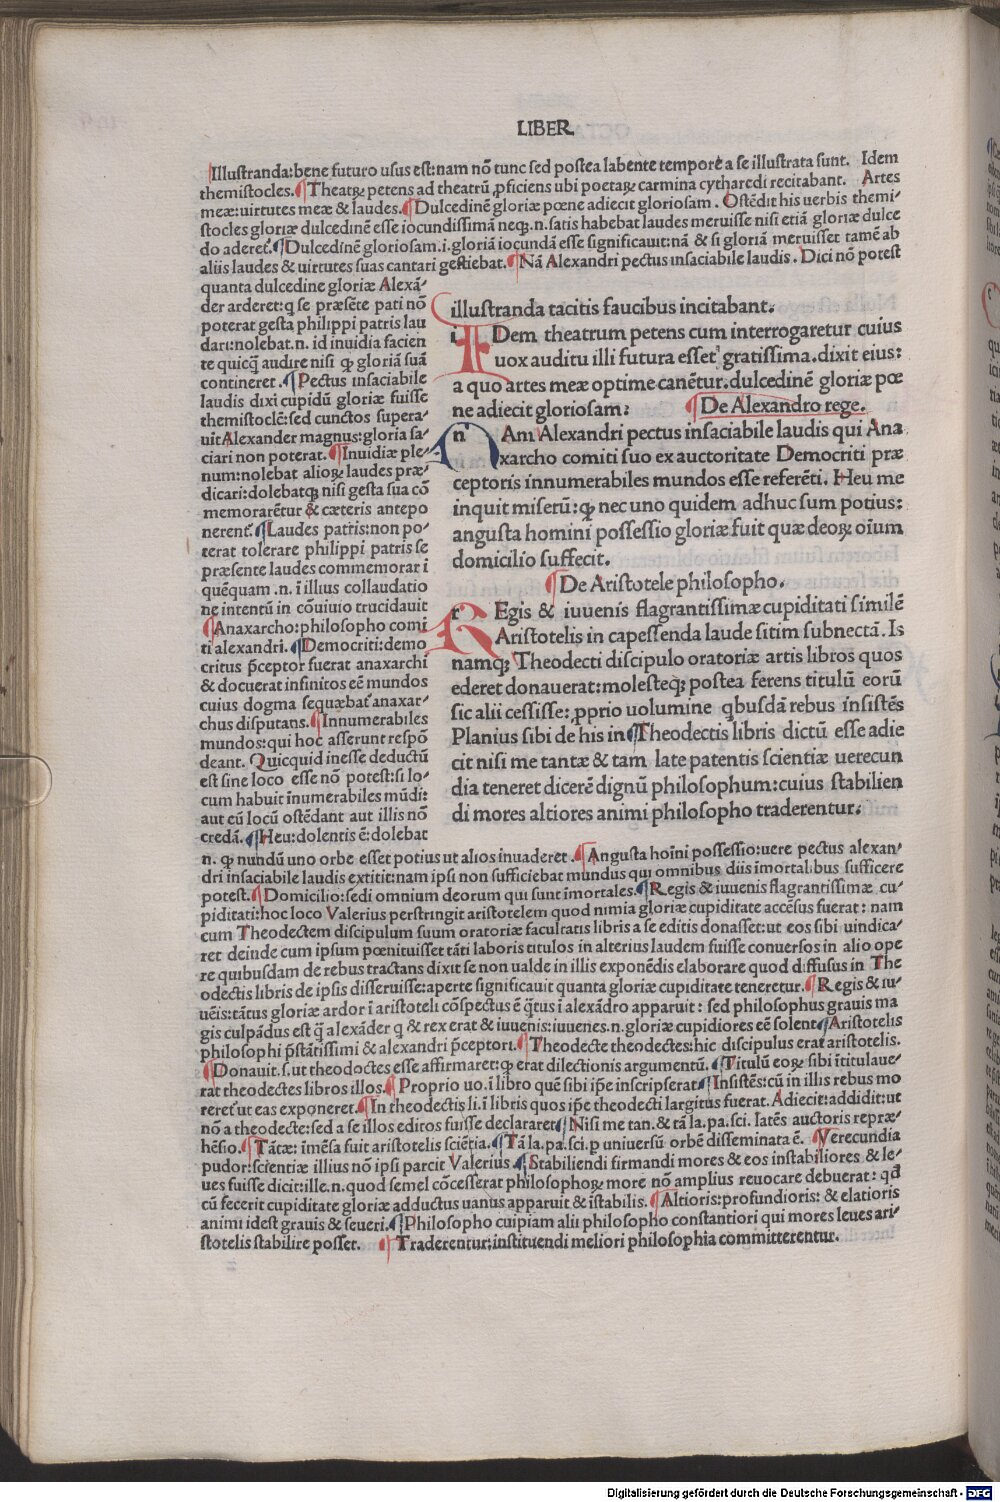 LIBER
Illustranda:bene futuro usus est:nam nō tunc sed postea labente tempore a se illustrata sunt. Idem
themistocles.¶Theatrꝝ petens ad theatrū ꝓficiens ubi poetaꝝ carmina cytharedi recitabant. Artes
meæ:uirtutes meæ & laudes.¶Dulcedinē gloriæ pœne adiecit gloriosam. Ostēdit his uerbis themi-
stocles gloriæ dulcedinē esse iocundissimā neqꝫ.n.satis habebat laudes meruisse nisi etiā gloriæ dulce
do aderet.¶Dulcedinē gloriosam.i.gloriā iocundā esse significauit:nā & si gloriā meruisset tamē ab
aliis laudes & uirtutes suas cantari gestiebat.¶Nā Alexandri pectus insaciabile laudis. Dici nō potest
quanta dulcedine gloriæ Alexā-
der arderet:q se præsēte pati nō
poterat gesta philippi patris lau
dari:nolebat.n. id inuidia facien
te quicꝗ audire nisi qꝫ gloriā suā
contineret.¶Pectus insaciabile
laudis dixi cupidū gloriæ fuisse
themistoclē:sed cunctos supera-
uit Alexander magnus:gloria sa-
ciari non poterat.¶Inuidiæ ple-
num:nolebat alioꝝ laudes præ-
dicari:dolebatqꝫ nisi gesta sua cō
memorarētur & cæteris antepo
nerent.¶Laudes patris:non po-
terat tolerare philippi patris se
præsente laudes commemorari
quēquam.n.ī illius collaudatio
ne intentū in cōuiuio trucidauit
¶Anaxarcho:philosopho comi
ti alexandri.¶Democriti:demo
critus p̄ceptor fuerat anaxarchi
& docuerat infinitos eē mundos
cuius dogma sequæbat̄ anaxar-
chus disputans.¶Innumerabiles
mundos:qui hoc asserunt respō
deant. Quicquid inesse deductū
est sine loco esse nō potest:si lo-
cum habuit īnumerabiles mūdi:
aut eū locū ostēdant aut illis nō
credā.¶Heu:dolentis ē:dolebat
illustranda tacitis faucibus incitabant.
i IDem theatrum petens cum interrogaretur cuius
uox auditu illi futura esset gratissima.dixit eius:
a quo artes meæ optime canētur.dulcedinē gloriæ pœ
ne adiecit gloriosam: ¶De Alexandro rege.
n NAm Alexandri pectus insaciabile laudis qui Ana
xarcho comiti suo ex auctoritate Democriti præ
ceptoris innumerabiles mundos esse referēti. Heu me
inquit miserū:qꝫ nec uno quidem adhuc sum potius:
angusta homini possessio gloriæ fuit quæ deoꝝ oīum
domicilio suffecit.
¶De Aristotele philosopho.
r REgis & iuuenis flagrantissimæ cupiditati similē
Aristotelis in capessenda laude sitim subnectā. Is
namqꝫ Theodecti discipulo oratoriæ artis libros quos
ederet donauerat:molesteqꝫ postea ferens titulū eorū
sic alii cessisse:ꝓprio uolumine qbusdā rebus insistēs
Planius sibi de his in¶Theodectis libris dictū esse adie
cit nisi me tantæ & tam late patentis scientiæ uerecun
dia teneret dicerē dignū philosophum:cuius stabilien
di mores altiores animi philosopho traderentur.
n. qꝫ nundū uno orbe esset potius ut alios inuaderet.¶Angusta hoīni possessio:uere pectus alexan-
dri insaciabile laudis extitit:nam ipsi non sufficiebat mundus qui omnibus diis īmortalibus sufficere
potest.¶Domicilio:sedi omnium deorum qui sunt īmortales.¶Regis & iuuenis flagrantissimæ cu-
piditati:hoc loco Valerius perstringit aristotelem quod nimia gloriæ cupiditate accēsus fuerat: nam
cum Theodectem discipulum suum oratoriæ facultatis libris a se editis donasset:ut eos sibi uindica-
ret deinde cum ipsum pœnituisset tāti laboris titulos in alterius laudem fuisse conuersos in alio ope
re quibusdam de rebus tractans dixit se non ualde in illis exponēdis elaborare quod diffusus in The
odectis libris de ipsis disseruisse:aperte significauit quanta gloriæ cupiditate teneretur.¶Regis & iu-
uēis:tātus gloriæ ardor ī aristoteli cōspectus ē q̄tus ī alexādro apparuit: sed philosophus grauis ma
gis culpādus est q̄ alexāder q & rex erat & iuuenis:iuuenes.n.gloriæ cupidiores eē solent¶Aristotelis
philosophi p̄stātissimi & alexandri p̄ceptori.¶Theodecte theodectes:hic discipulus erat aristotelis.
¶Donauit.s.ut theodoctes esse affirmaret:qꝫ erat dilectionis argumentū.¶Titulū eoꝝ sibi ītitulaue-
rat theodectes libros illos.¶Proprio uo.ī libro quē sibi ip̄e inscripserat¶Insistēs:cū in illis rebus mo
reret̄ ut eas exponeret.¶In theodectis li.ī libris quos ip̄e theodecti largitus fuerat. Adiecit:addidit:ut
nō a theodecte:sed a se illos editos fuisse declararet¶Nisi me tan.& tā la.pa.sci. latēs auctoris repræ-
hēsio.¶Tātæ: īmēsa fuit aristotelis sciētia.¶Tā la.pa.sci.p uniuersū orbē disseminata ē. ¶Verecundia
pudor:scientiæ illius nō ipsi parcit Valerius.¶Stabiliendi firmandi mores & eos instabiliores & le-
ues fuisse dicit:ille.n.quod semel cōcesserat philosophoꝝ more nō amplius reuocare debuerat: qđ
cū fecerit cupiditate gloriæ adductus uanus apparuit & īstabilis.¶Altioris:profundioris: & elatioris
animi idest grauis & seueri.¶Philosopho cuipiam alii philosopho constantiori qui mores leues ari-
stotelis stabilire posset. ¶Traderentur:instituendi meliori philosophia committerentur.
Digitalisierung gefördert durch die Deutsche Forschungsgemeinschaft - DFG